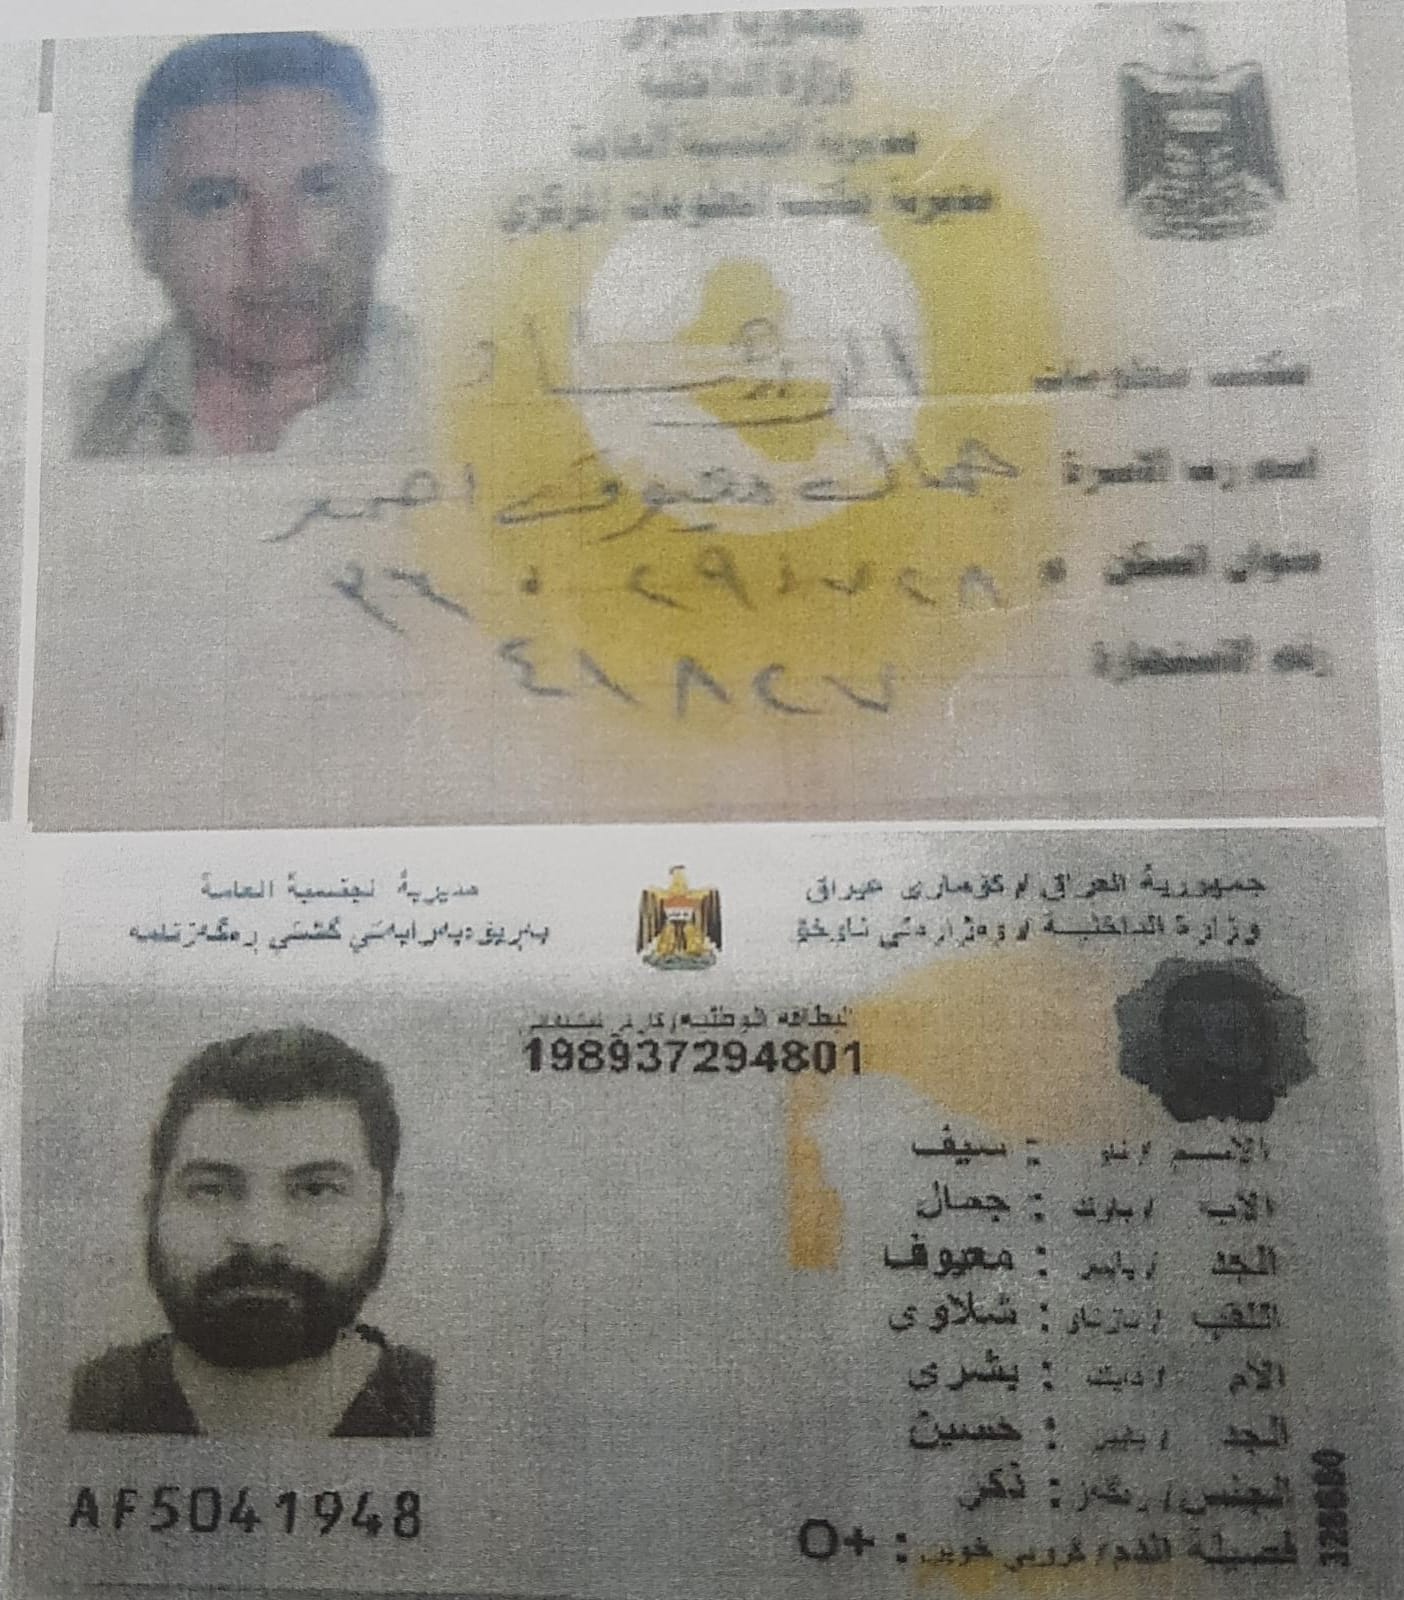 جمهورية العراق
وزارة الداخلية
مديرية الجنسية العامة
مديرية مكتب المعلومات المركزي
مكتب معلومات الرشاد
اسم رب الاسرة جمال معيوف احمد
عنوان السكن
رقم الاستمارة ٧٢٨١٤
جمهورية العراق / كۆماری عیراق
وزارة الداخلية / وەزارەتی ناوخۆ
مديرية الجنسية العامة
بەڕێوەبەرایەتی گشتی رەگەزنامە
البطاقة الوطنية / كارتى نيشتمانى
198937294801
الاسم / ناو : سيف
الاب / باوك : جمال
الجد / باپير : معيوف
اللقب / نازناو : شلاوي
الام / دايك : بشرى
الجد / باپير : حسين
الجنس / رەگەز : ذكر
فصيلة الدم / گروپی خوێن : O+
AF5041948